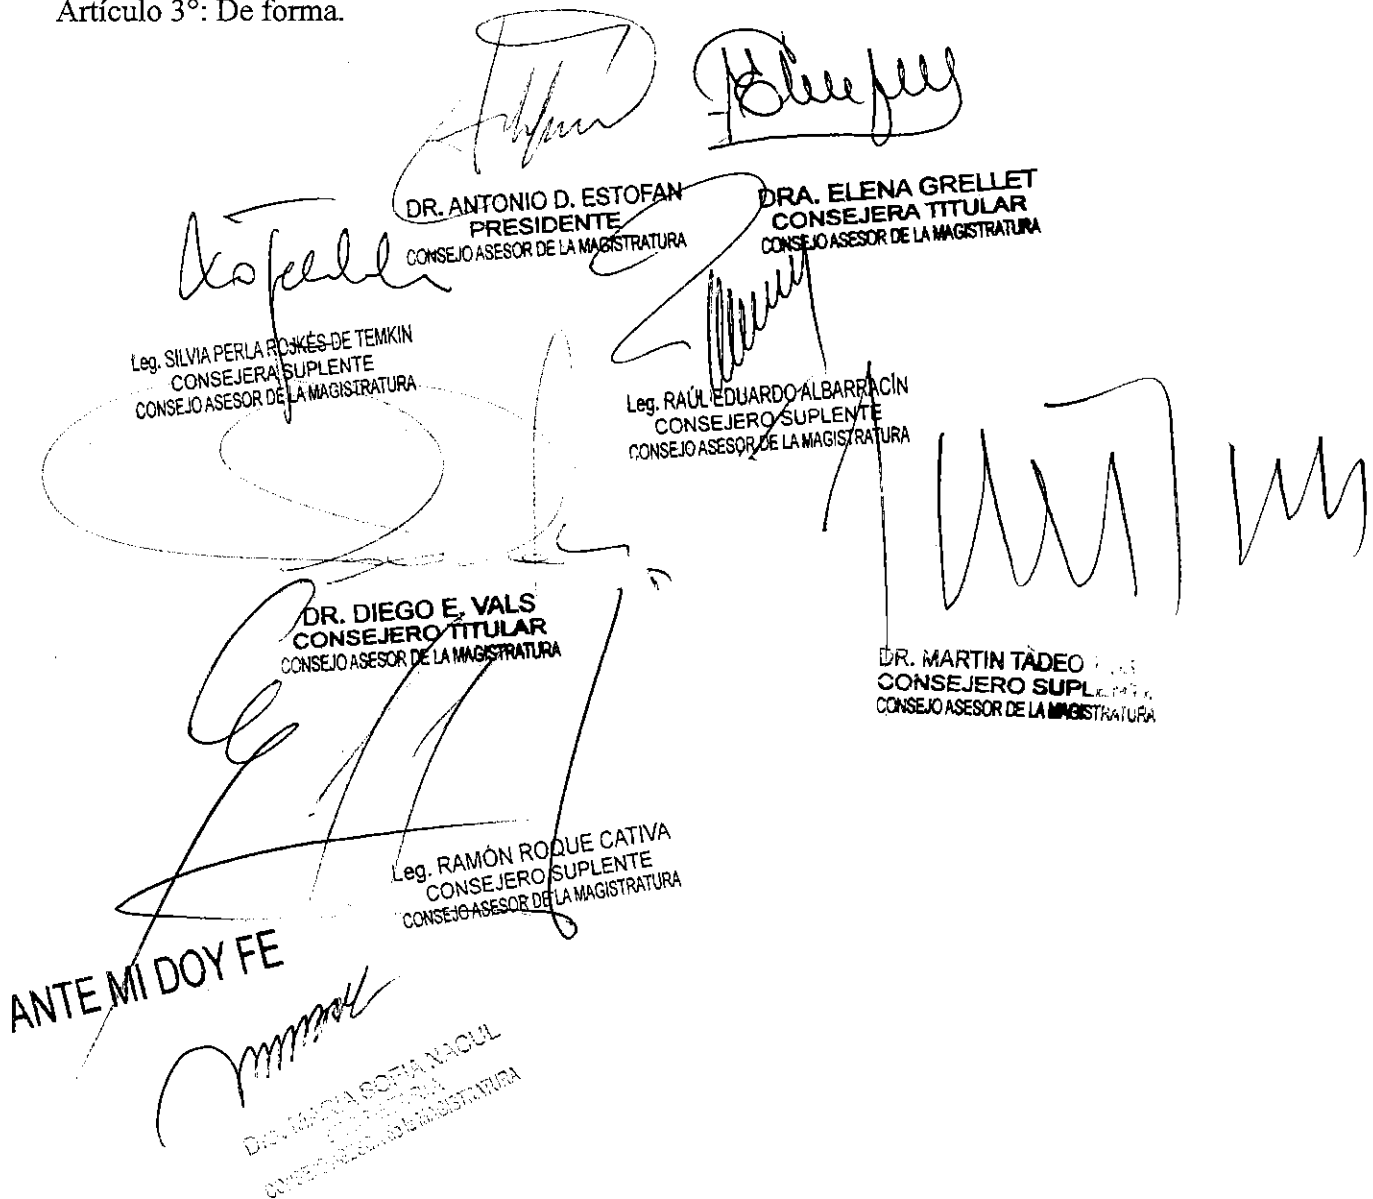 Artículo 3°: De forma.
DR. ANTONIO D. ESTOFAN
PRESIDENTE
CONSEJO ASESOR DE LA MAGISTRATURA
DRA. ELENA GRELLET
CONSEJERA TITULAR
CONSEJO ASESOR DE LA MAGISTRATURA
Leg. SILVIA PERLA ROJKÉS DE TEMKIN
CONSEJERA SUPLENTE
CONSEJO ASESOR DE LA MAGISTRATURA
Leg. RAÚL EDUARDO ALBARRACÍN
CONSEJERO SUPLENTE
CONSEJO ASESOR DE LA MAGISTRATURA
DR. DIEGO E. VALS
CONSEJERO TITULAR
CONSEJO ASESOR DE LA MAGISTRATURA
DR. MARTIN TADEO
CONSEJERO SUPLENTE
CONSEJO ASESOR DE LA MAGISTRATURA
Leg. RAMÓN ROQUE CATIVA
CONSEJERO SUPLENTE
CONSEJO ASESOR DE LA MAGISTRATURA
ANTE MI DOY FE
Dra. MARIA SOFIA NACUL
SECRETARIA
CONSEJO ASESOR de la MAGISTRATURA